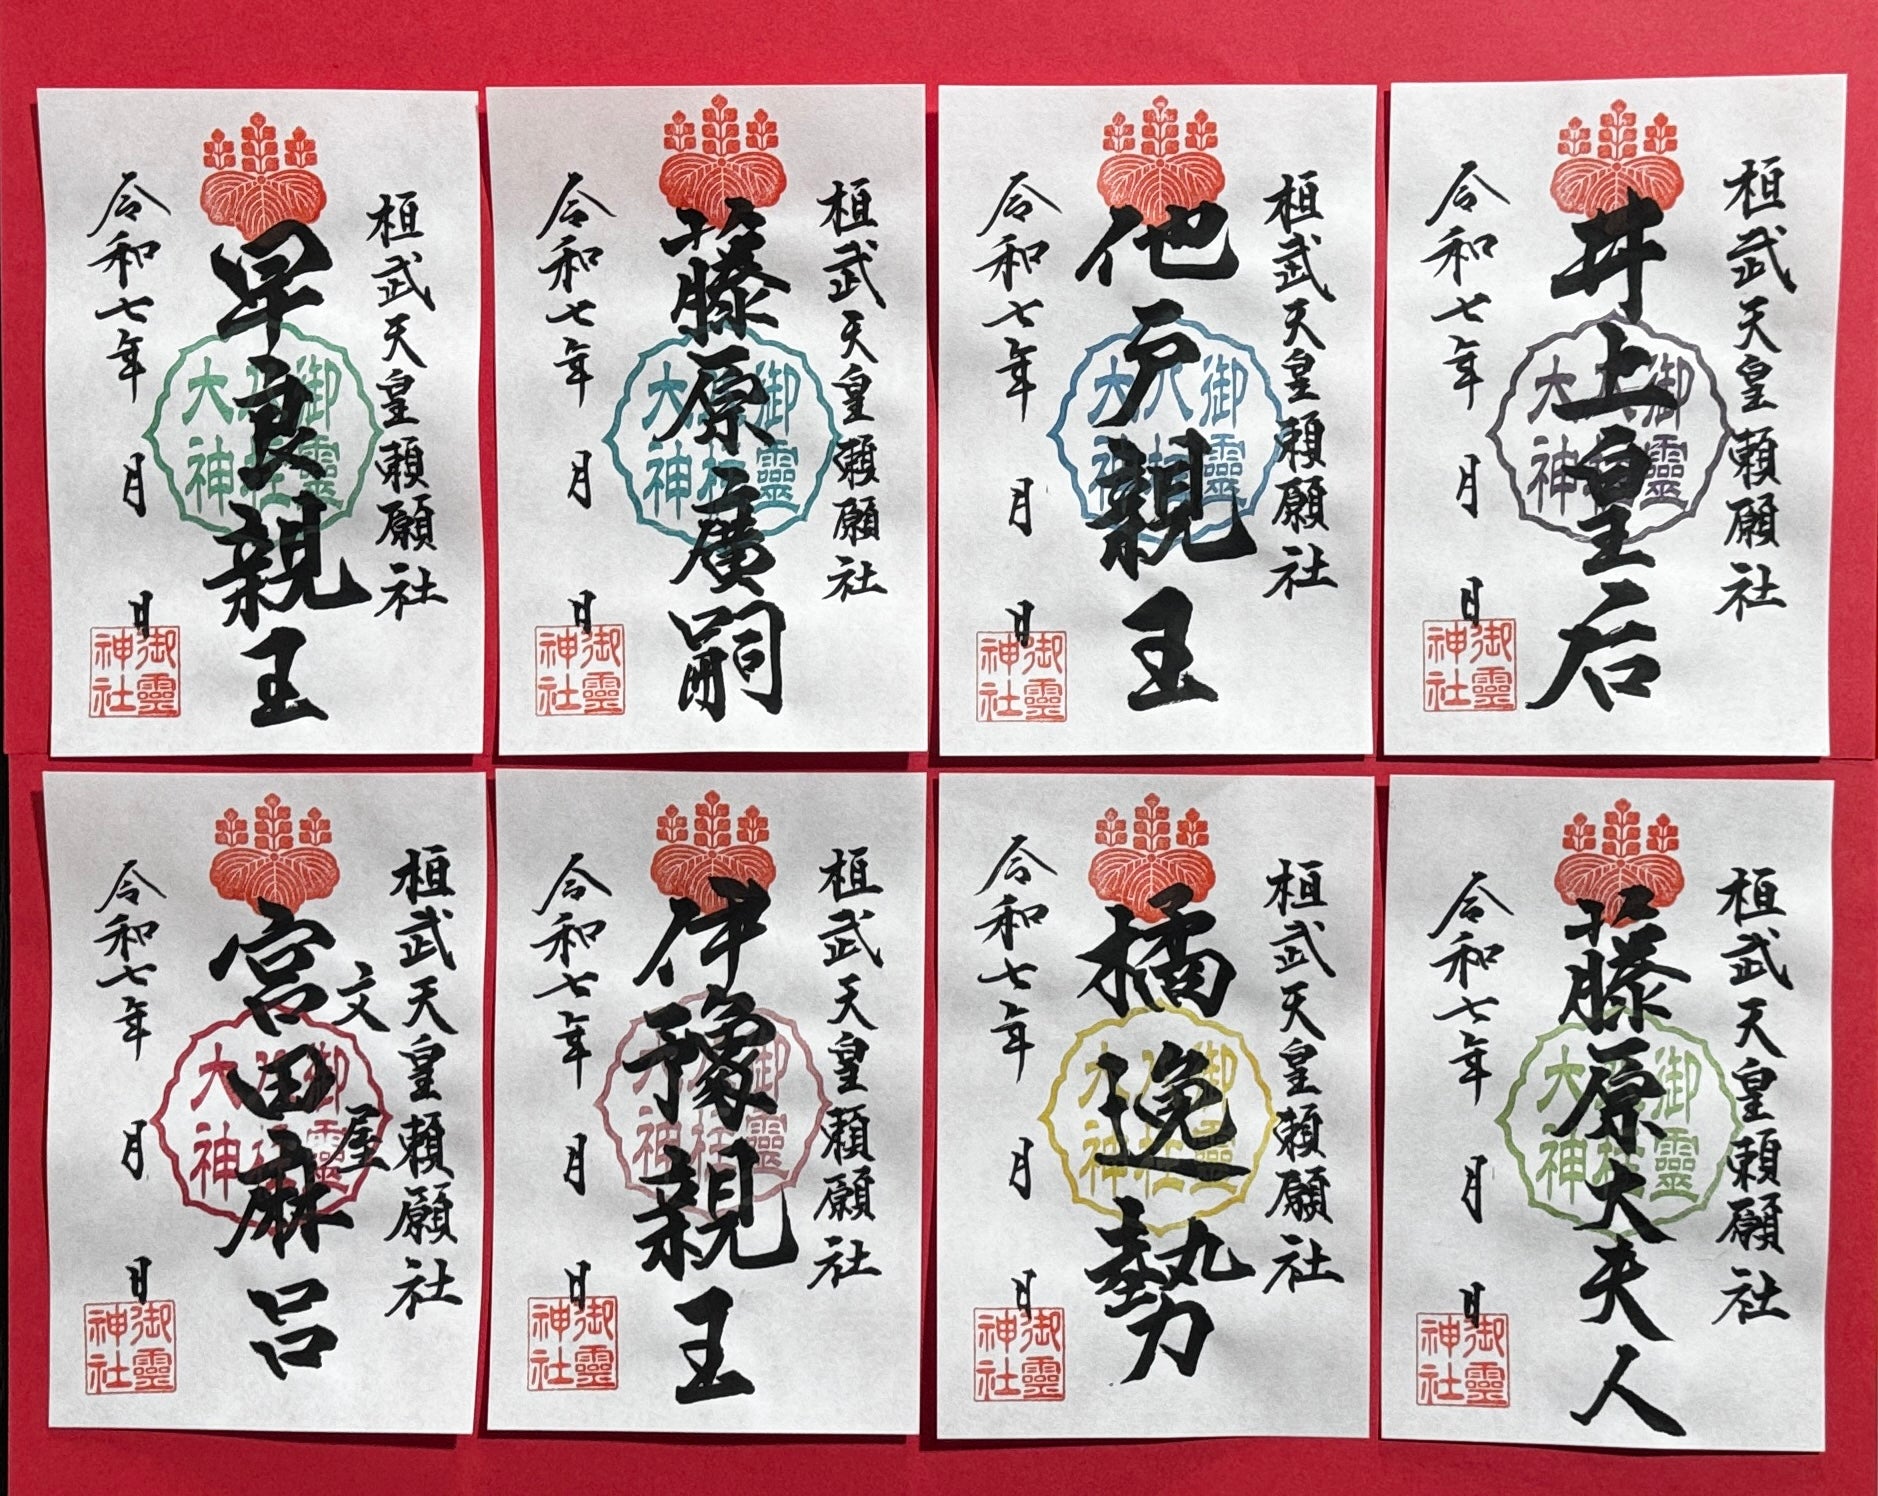 桓武天皇頼願社
井上皇后
御靈
八柱
大神
令和七年 月 日
御靈
神社
桓武天皇頼願社
他戸親王
御靈
八柱
大神
令和七年 月 日
御靈
神社
桓武天皇頼願社
藤原廣嗣
御靈
八柱
大神
令和七年 月 日
御靈
神社
桓武天皇頼願社
早良親王
御靈
八柱
大神
令和七年 月 日
御靈
神社
桓武天皇頼願社
藤原大夫人
御靈
八柱
大神
令和七年 月 日
御靈
神社
桓武天皇頼願社
橘逸勢
御靈
八柱
大神
令和七年 月 日
御靈
神社
桓武天皇頼願社
伊豫親王
御靈
八柱
大神
令和七年 月 日
御靈
神社
桓武天皇頼願社
文屋
宮田麻呂
御靈
八柱
大神
令和七年 月 日
御靈
神社